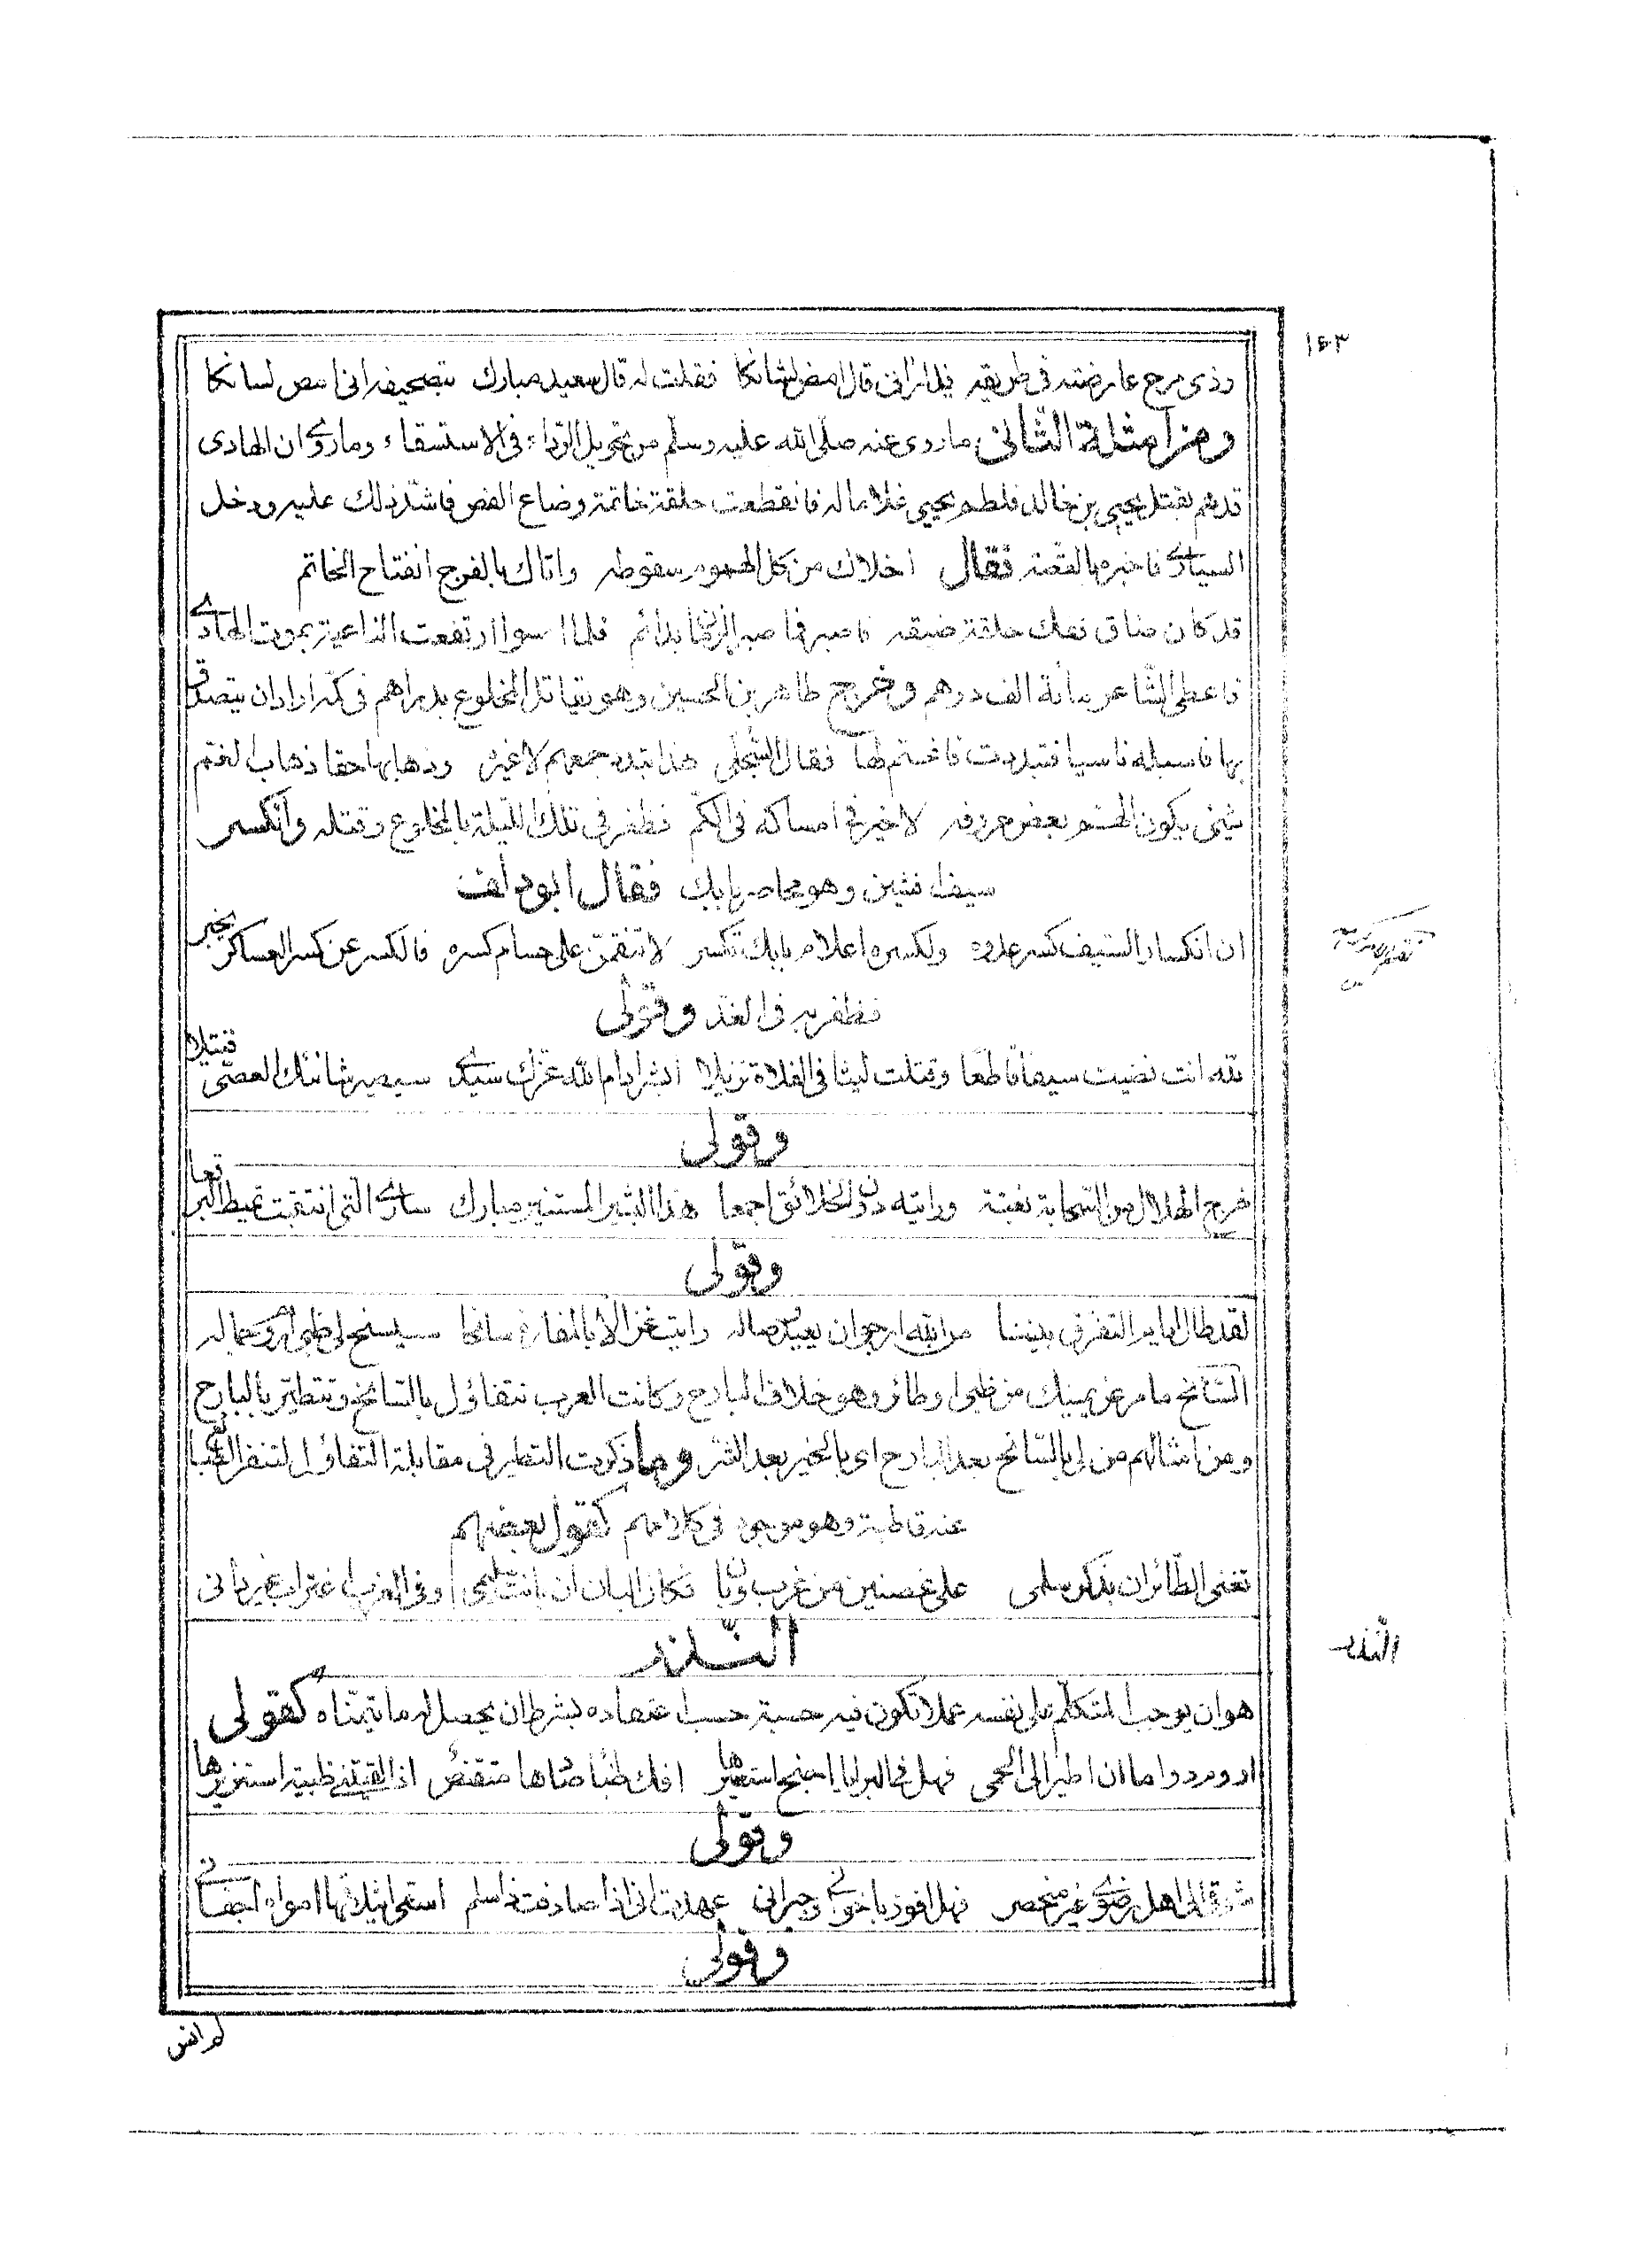 ١٤٣
وذى مرح عارضته فى طريقه فلما رانى قال امض لشانكا فقلت له قال سعيد مبارك بتصحيفه انى امص لسانكا
ومن امثلة الثانى ما روى عنه صلى الله عليه وسلم من تحويل الرداء فى الاستسقاء وما روى ان الهادى
قد هم بقتل يحيى بن خالد فلطم يحيى غلاما له فانقطعت حلقة خاتمة وضاع الفص فاشتد ذلك عليه ودخل
السيارى فاخبره بالقصة فقال اخلاك من كل الهموم سقوطه واتاك بالفرج انفتاح الخاتم
قد كان ضاق ففك حلقة ضيقه فاصبر فما صبر الزمان بدائم فلما امسوا ارتفعت الناعية بموت الهادى
فاعطى الشاعر مائة الف درهم وخرج طاهر بن الحسين وهو يقاتل المخلوع بدراهم فى كمه اراد ان يتصدق
بها فاسبله ناسيا فتبددت فاغتم لها فقال الشجلى هذا تبدد جمعهم لا غيره وذهابها حقا ذهاب الغم
شيئ يكون الهم بعض حروفه لا خير فى امساكه فى الكم فظفر فى تلك الليلة بالمخلوع وقتله وانكسر
سيف افشين وهو محاصر بابك فقال ابو دلف
ان انكسار السيف كسر عدوه ولكسره اعلام بابك تكسر لا تنقمن على حسام كسره فالكسر عن كسر العساكر يخبر
فظفر به فى الغد وقولى
لله انت نضيت سيفا قاطعا وقتلت ليثا فى الفلاة نزيلا ابشر ادام الله عزك سيدى سيصير شانئك العصى قتيلا
وقولى
خرج الهلال من السحابة بغتة ورايته دون الخلائق اجمعا هذا البشير المستنير مبارك ساري التى انتقبت تميط البرقعا
وقولى
لقد طال ايام التفرق بيننا من الله ارجو ان يعيد وصاله رايت غزالا بالمفازة سانحا سيسنح لى ظبى اروم جماله
السانح ما مر عن يمينك من ظبى او طائر وهو خلاف البارح وكانت العرب تتفاؤل بالسانح وتتطير بالبارح
ومن امثالهم من لى بالسانح بعد البارح اى بالخير بعد الشر وما ذكرت التطير فى مقابلة التفاؤل لتنفر الطبائع
عنه قاطبة وهو موجود فى كلامهم كقول بعضهم
تغنى الطائران بذكر سلمى على غصنين من غرب وبان فكان البان ان بانت سليمى وفى الغرب اغتراب غير دانى
النذر
هو ان يوجب المتكلم على نفسه عملا تكون فيه حسبة حسب اعتقاده بشرط ان يحصل له ما يتمناه كقولى
اروم دواما ان اطير الى الحمى فهل فى البرايا اجنح استعيرها افك ظباء صادها متقنص اذا لقيتنى ظبية استزيرها
وقولى
شوقى الى اهل رضوى غير منحصر فهل افوز باخوانى وجيرانى عهدت انى اذا صادفت ذا سلم اسقى اثيلاتها امواه اجفانى
وقولى
النذر